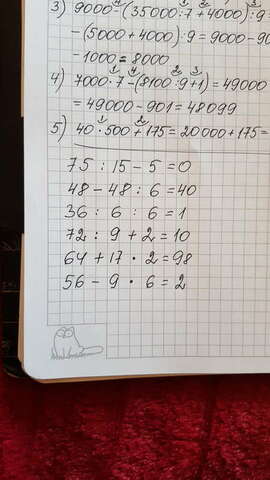 3) 9000-(35000:7+4000):9
-(5000+4000):9=9000-90
-1000=8000
4) 7000·7-(8100:9+1)=49000
=49000-901=48099
5) 40·500+175=20000+175=
75 : 15 - 5 = 0
48 - 48 : 6 = 40
36 : 6 : 6 = 1
72 : 9 + 2 = 10
64 + 17 · 2 = 98
56 - 9 · 6 = 2